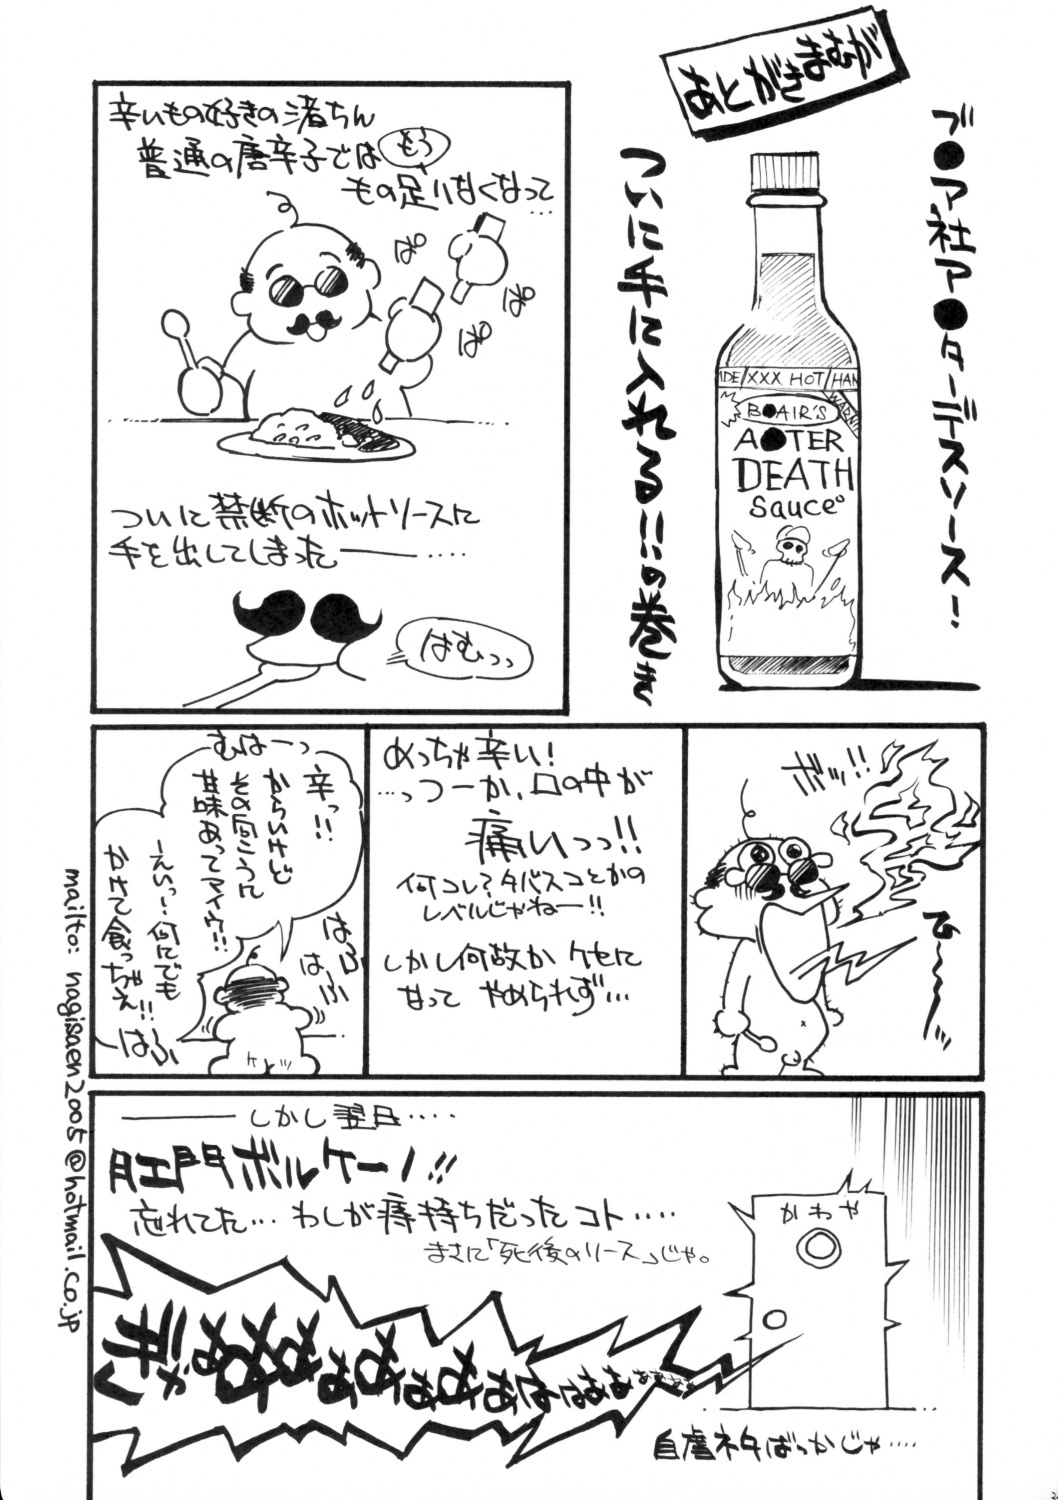 あとがきまむが
ブ●ア社ア●ターデスソース!
ついに手に入れる!!の巻き
IDE/XXX HOT/HAN
WARNIN
B●AIR'S
A●TER
DEATH
Sauce
辛いもの好きの渚ちん
普通の唐辛子ではもう
もの足りなくなって
…
ぱ
ぱ
ぱ
ぱ
ついに禁断のホットソースに
手を出してしまった――…‥
はむっっ
ボッ!!
ひ〜〜〜っ
めっちゃ辛い!
…っつーか、口の中が
痛いっっ!!
何コレ?タバスコとかの
レベルじゃねー!!
しかし何故かクセに
なって やめられず…
むはーっ
辛っ!!
からいけど
その向こうに
甘味あってマイウ!!
ーえいっ、何にでも
かけて食っちゃえ!!
はふ
はふ
はふ
mailto: nagisaen2005@hotmail.co.jp
―――しかし翌日‥‥
肛門ボルケーノ!!
忘れてた…わしが痔持ちだったコト‥‥
まさに「死後のソース」じゃ。
かわや
自虐ネタばっかじゃ‥‥